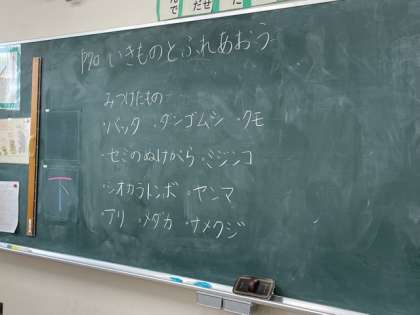 んで
だせ
た
P70 いきものとふれあおう
みつけたもの
・バッタ ・ダンゴムシ ・クモ
・セミのぬけがら ・ミジンコ
・シオカラトンボ ・ヤンマ
・アリ ・メダカ ・ナメクジ
下